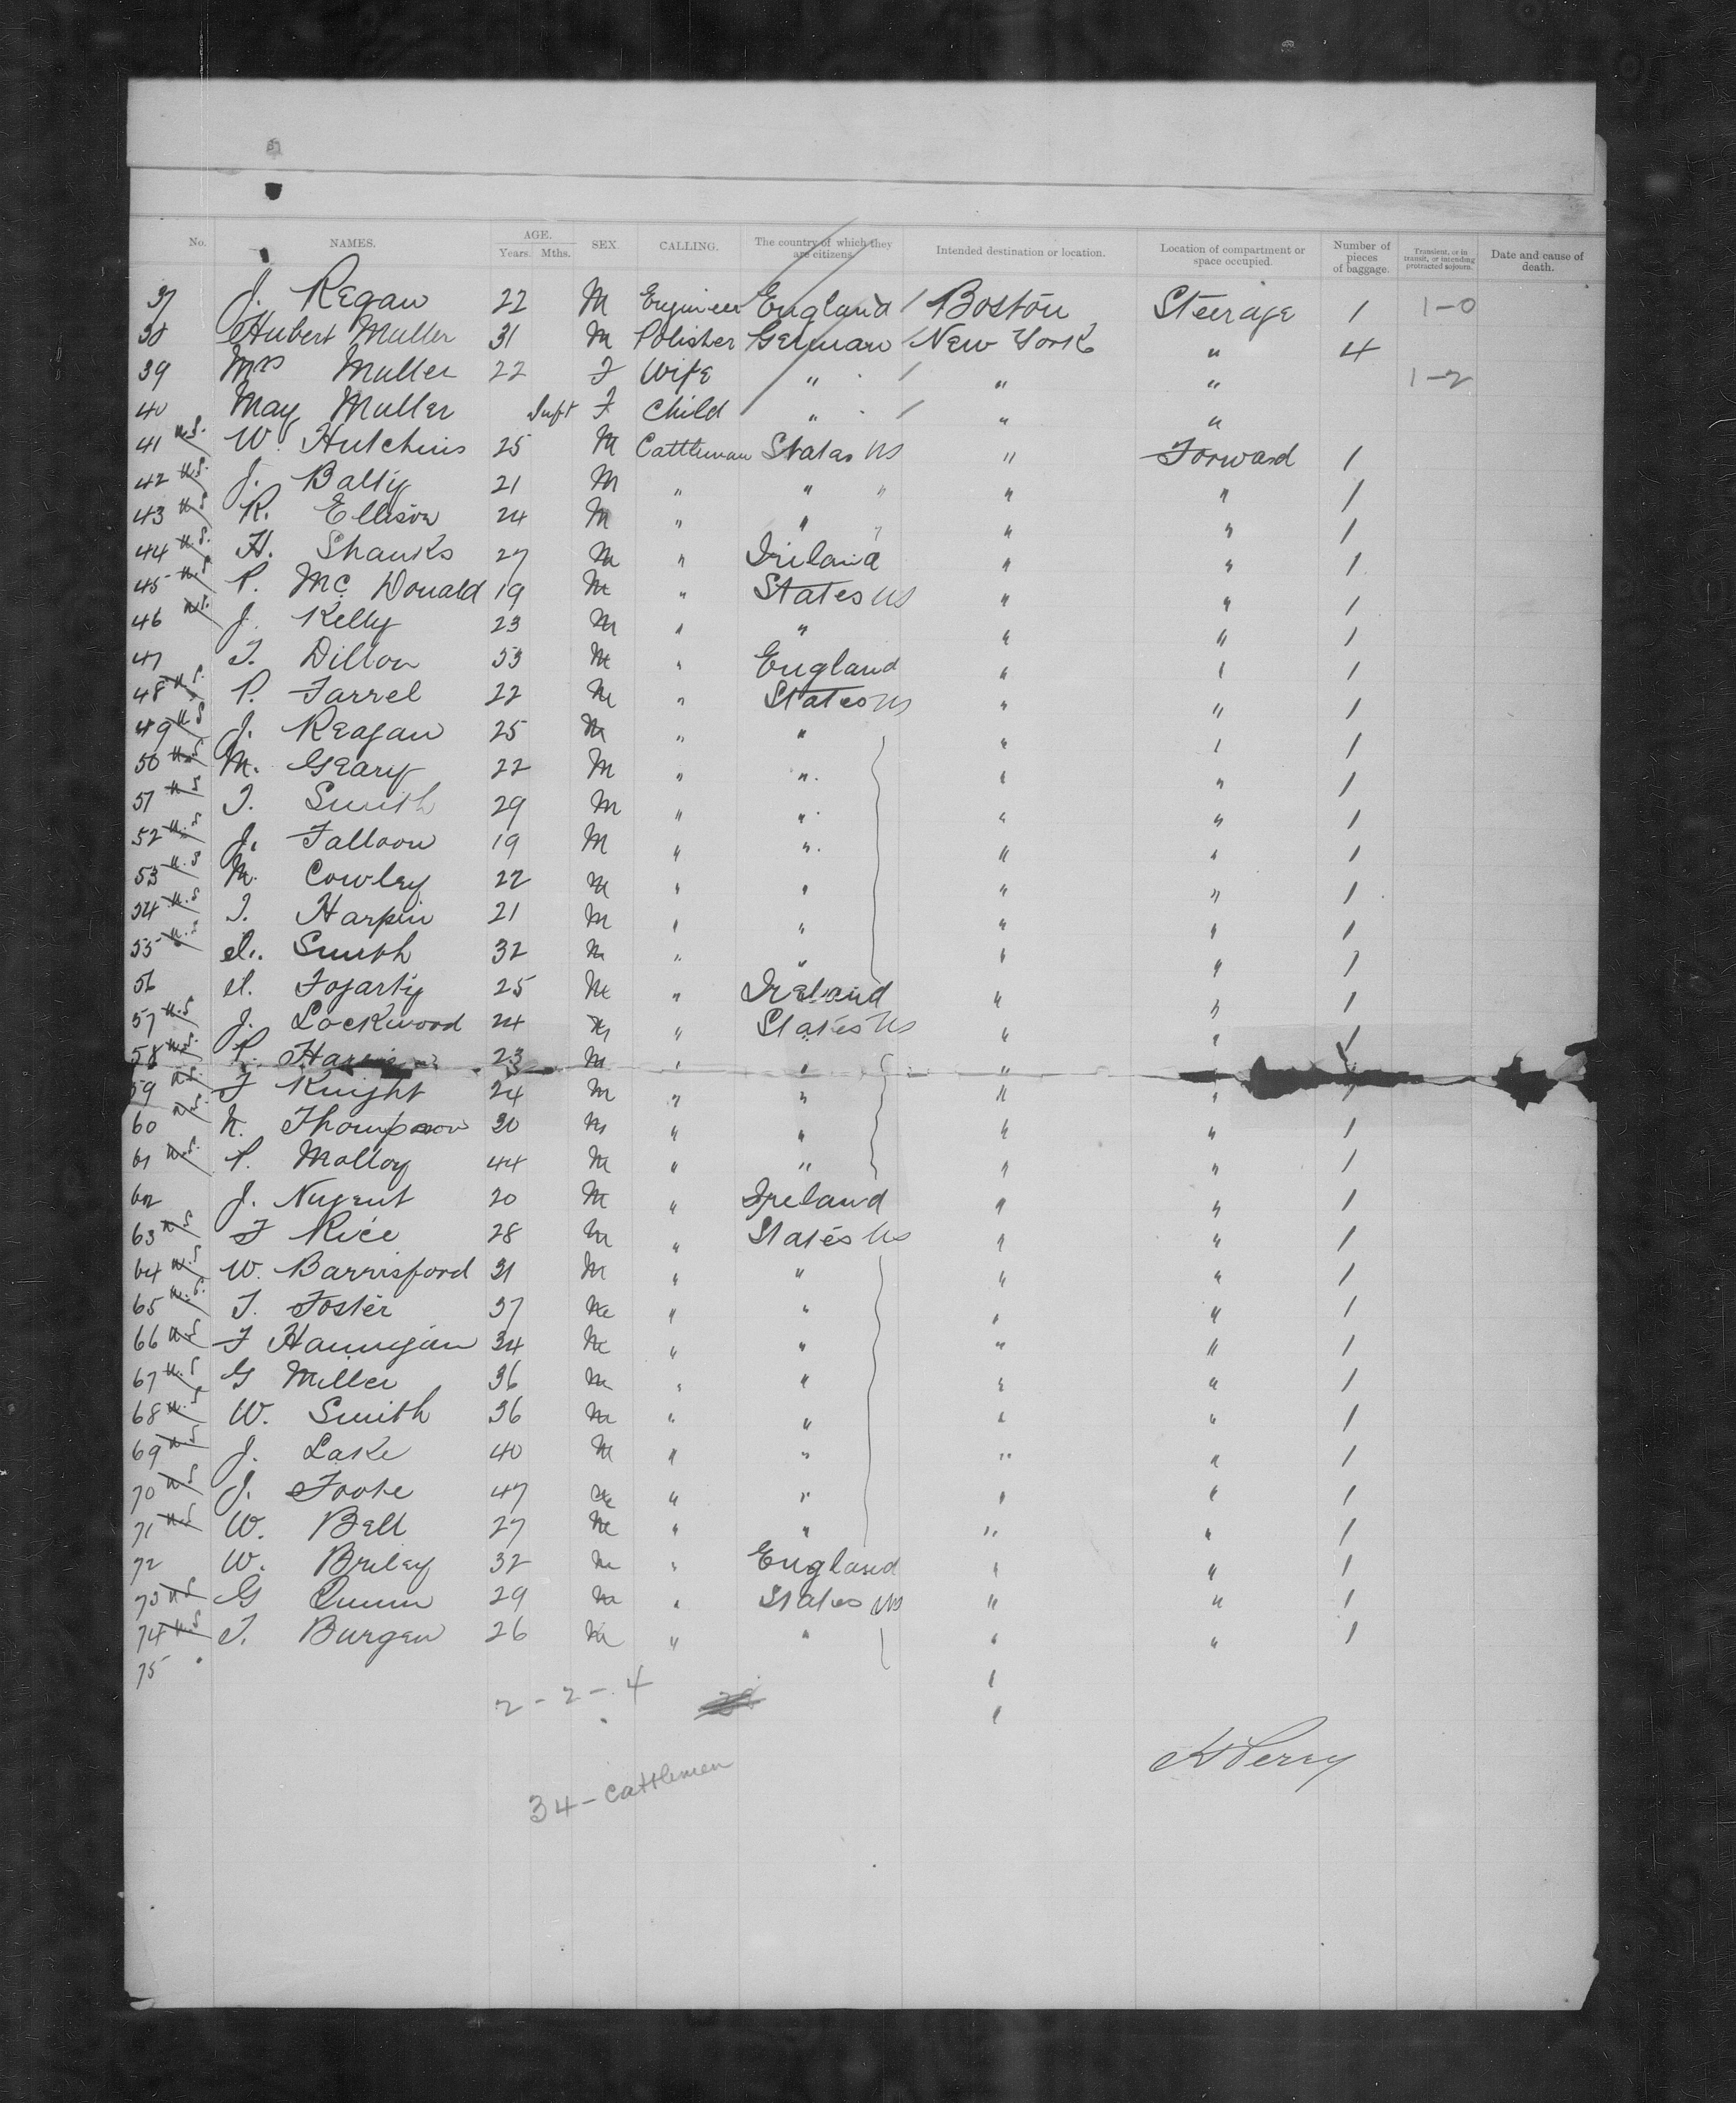 No. NAMES. AGE. Years. Mths. SEX. CALLING. The country of which they are citizens. Intended destination or location. Location of compartment or space occupied. Number of pieces of baggage. Transient, or in transit, or intending protracted sojourn. Date and cause of death.
37 J. Regan 22 M Engineer England / Boston Steerage 1 1-0
38 Hubert Muller 31 M Polisher German / New York " 4
39 Mrs Muller 22 F Wife " / " " 1-2
40 May Muller Inft F Child " / " "
41 U.S. W. Hutchins 25 M Cattleman States US " Forward 1
42 U.S. J. Balty 21 M " " " " " 1
43 U.S. R. Ellison 24 M " " " " " 1
44 U.S. H. Shanks 27 M " Ireland " " 1
45 U.S. P. McDonald 19 M " States US " " 1
46 U.S. J. Kelly 23 M " " " " 1
47 T. Dillon 53 M " England " " 1
48 U.S. P. Farrel 22 M " States US " " 1
49 U.S. J. Reagan 25 M " " " " 1
50 U.S. M. Geary 22 M " " " " 1
51 U.S. T. Smith 29 M " " " " 1
52 U.S. J. Falloon 19 M " " " " 1
53 U.S. M. Cowley 22 M " " " " 1
54 U.S. T. Harpin 21 M " " " " 1
55 U.S. Smith 32 M " " " " 1
56 Fogarty 25 M " Ireland " " 1
57 U.S. J. Lockwood 24 M " States US " " 1
58 U.S. P. 23 M " " " " 1
59 U.S. F Knight 24 M " " " " 1
60 U.S. N. Thompson 30 M " " " " 1
61 U.S. P. Molloy 44 M " " " " 1
62 J. Nugent 20 M " Ireland " " 1
63 U.S. F Rice 28 M " States US " " 1
64 U.S. W. Barrisford 31 M " " " " 1
65 U.S. T. Foster 37 M " " " " 1
66 U.S. F Hannigan 34 M " " " " 1
67 U.S. G Miller 36 M " " " " 1
68 U.S. W. Smith 36 M " " " " 1
69 U.S. J. Lake 40 M " " " " 1
70 U.S. J. Foote 47 M " " " " 1
71 U.S. W. Bell 27 M " " " " 1
72 W. Briley 32 M " England " " 1
73 U.S. G Quinn 29 M " States US " " 1
74 U.S. T. Burgen 26 M " " " " 1
75 "
2-2-4 "
H Perry
34-cattlemen